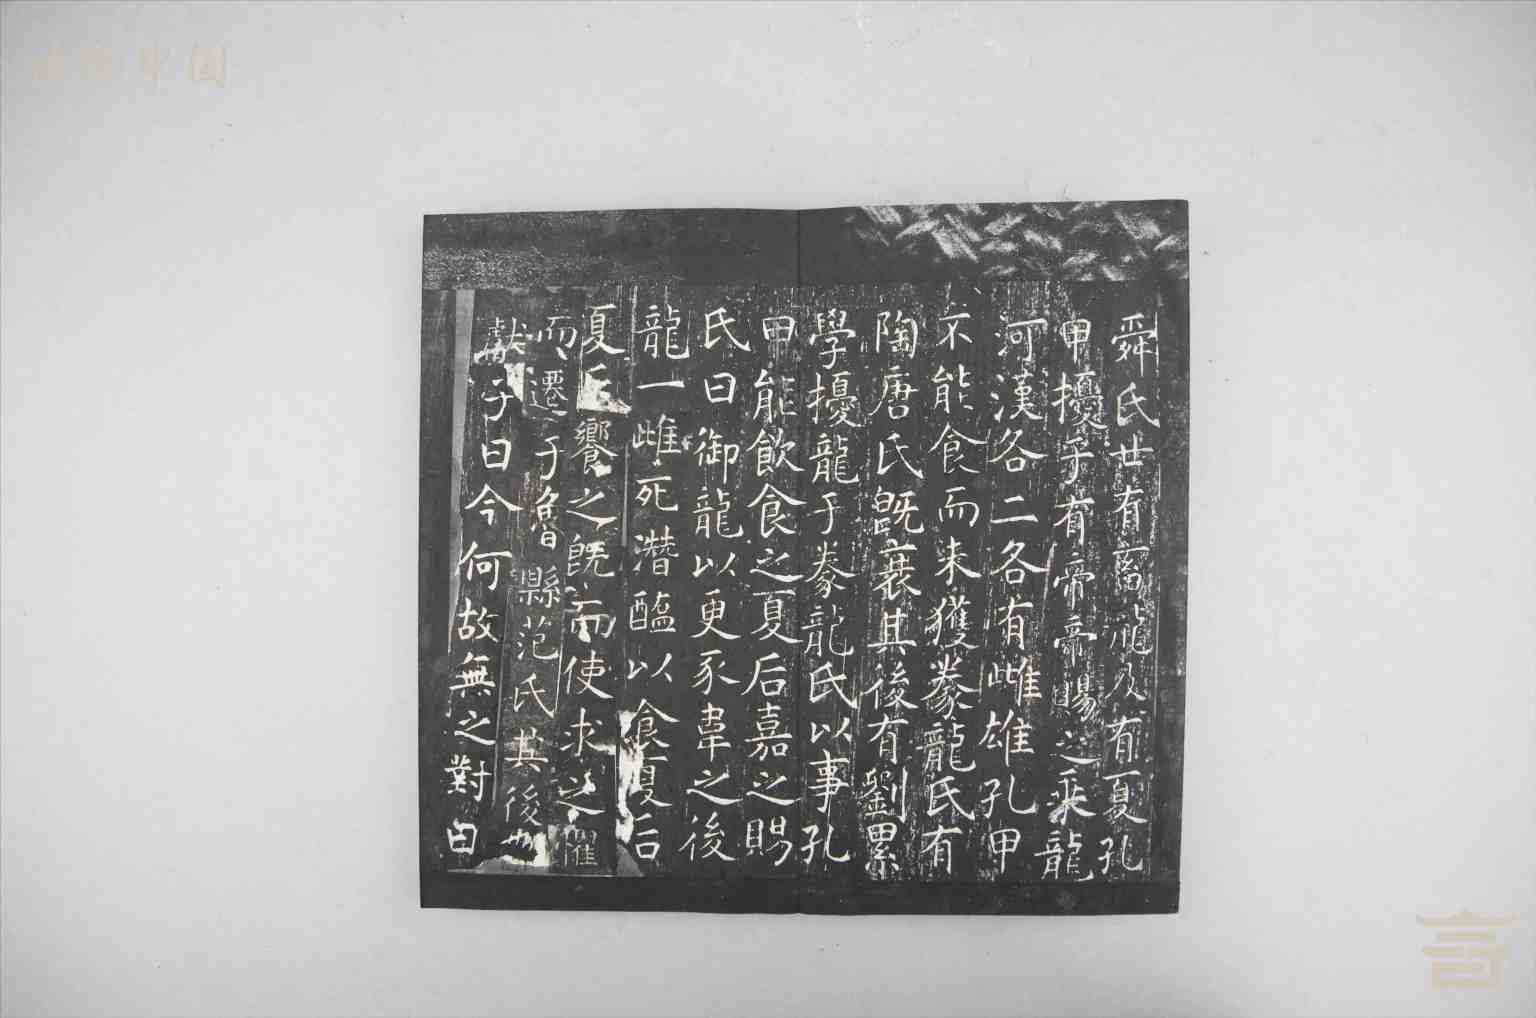 舜氏世有畜龍及有夏孔
甲擾于有帝帝賜之乘龍
河漢各二各有雌雄孔甲
不能食而未獲豢龍氏有
陶唐氏既衰其後有劉累
學擾龍于豢龍氏以事孔
甲能飲食之夏后嘉之賜
氏曰御龍以更豕韋之後
龍一雌死潛醢以食夏后
夏后饗之既而使求之懼
而遷于魯縣范氏其後也
獻子曰今何故無之對曰
中国